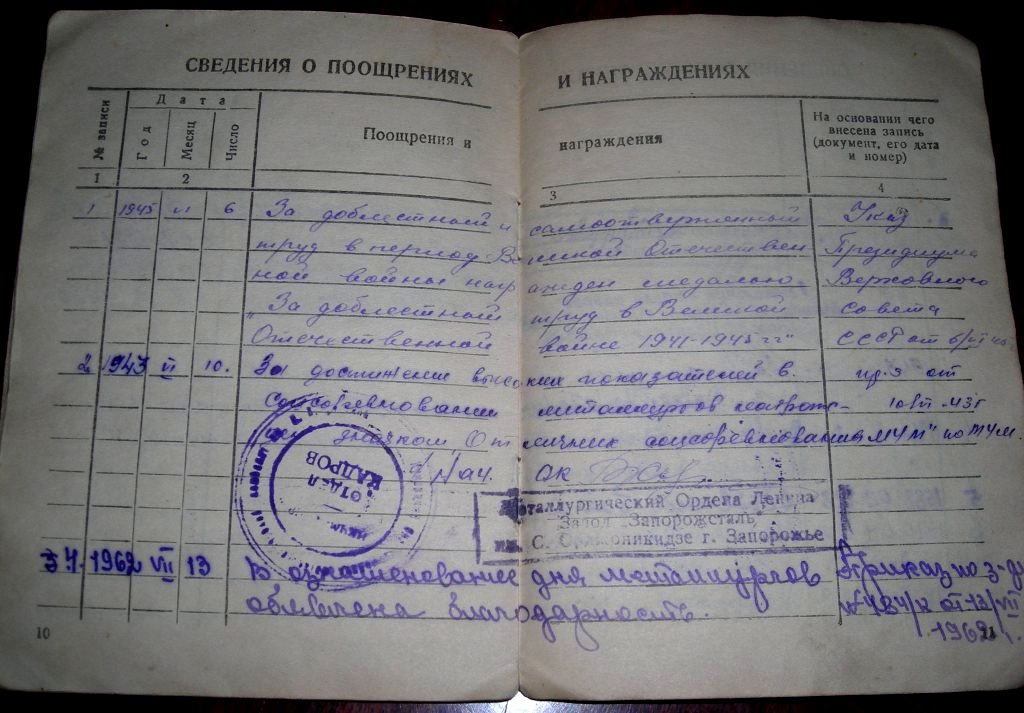 СВЕДЕНИЯ О ПООЩРЕНИЯХ И НАГРАЖДЕНИЯХ
№ записи
Дата
Год Месяц Число
Поощрения и награждения
На основании чего
внесена запись
(документ, его дата
и номер)
1 2 3 4
1 1945 VI 6 За доблестный и самоотверженный Указ
труд в период Великой Отечествен Президиума
ной войны награжден медалью Верховного
„За доблестный труд в Великой совета
Отечественной войне 1941-1945 гг" СССР от 6/VI
2 1943 VI 10. За достижение высоких показателей в пр. 3 от
соцсоревновании металлургов
значком Отличник соцсоревнования МЧМ"
Нач. ОК
ОТДЕЛ
КАДРОВ
Металлургический Ордена Ленина
Завод „Запорожсталь"
им. С. Орджоникидзе г. Запорожье
1962 VII 13 В ознаменование дня металлургов Приказ по з-ду
объявлена благодарность. № 484/к от 12/VII
1962 г.
10
11